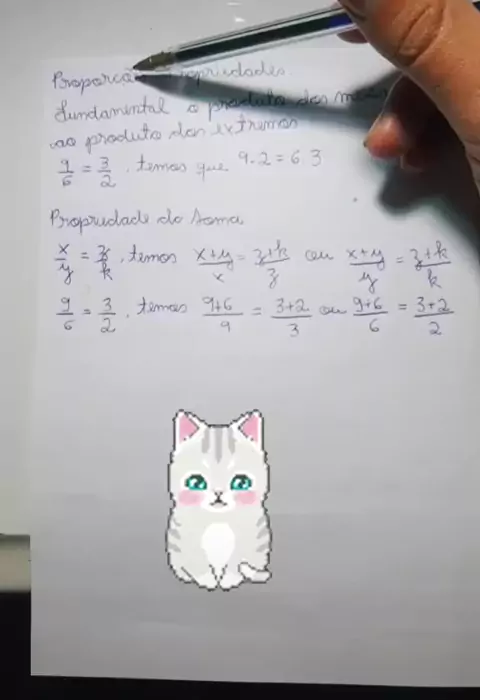 Proporção Propriedades.
Fundamental o produto dos
ao produto dos extremos
9/6 = 3/2, temos que 9.2 = 6.3
Propriedade da Soma
x/y = z/k, temos (x+y)/x = (z+k)/z ou (x+y)/y = (z+k)/k
9/6 = 3/2, temos (9+6)/9 = (3+2)/3 ou (9+6)/6 = (3+2)/2